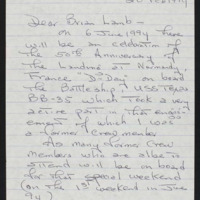 Dear Brian Lamb -
on 6 June 1994 there
will be an celebration of
the 50th Anniversary of
the Landing at Normandy
France "D-Day" on board
the Battleship, USS Texas
BB-35 which took a very
active part in that
of which I was
a former crew member
As many former crew
members who are able to
attend will be on board
for that special weekend
(on the 1st weekend in June
94)